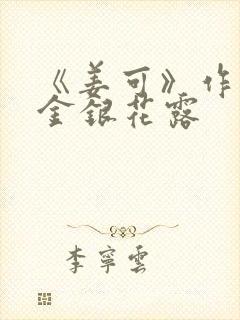 《姜可》作
金銀花露
李寧雲